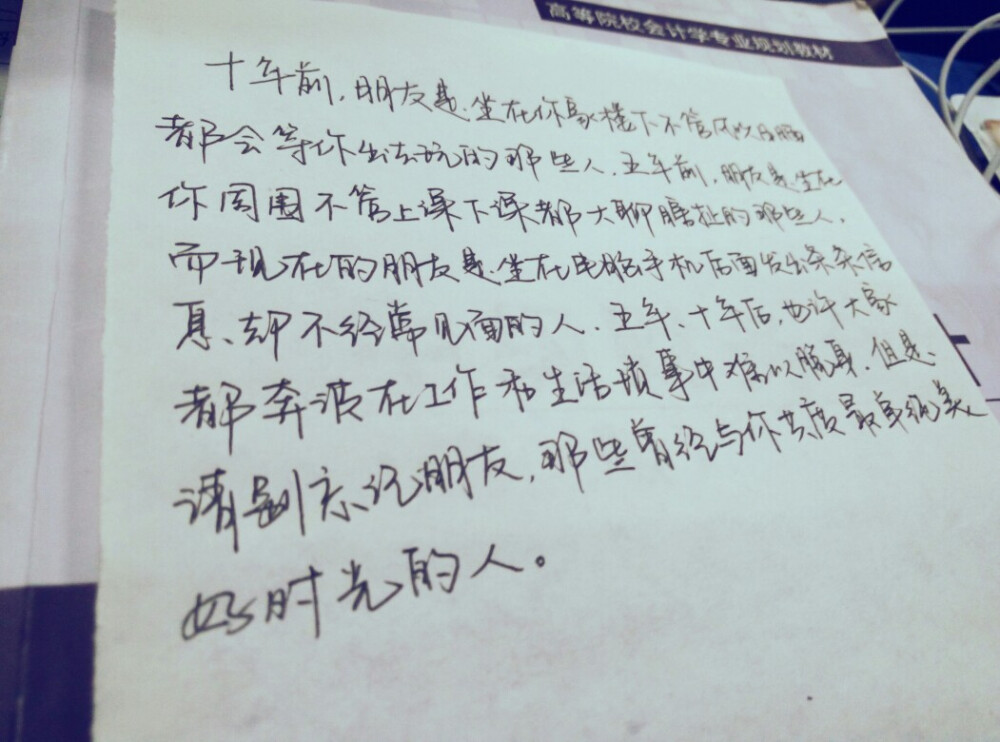 高等院校会计学专业规划教材
十年前,朋友是坐在你家楼下不管风吹日晒
都会等你出去玩的那些人.五年前,朋友是坐在
你周围不管上课下课都大聊瞎扯的那些人,
而现在的朋友是坐在电脑手机后面发出条条信
息、却不经常见面的人.五年、十年后,也许大家
都奔波在工作和生活琐事中难以脱身.但是、
请别忘记朋友,那些曾经与你共度最单纯美
好时光的人。